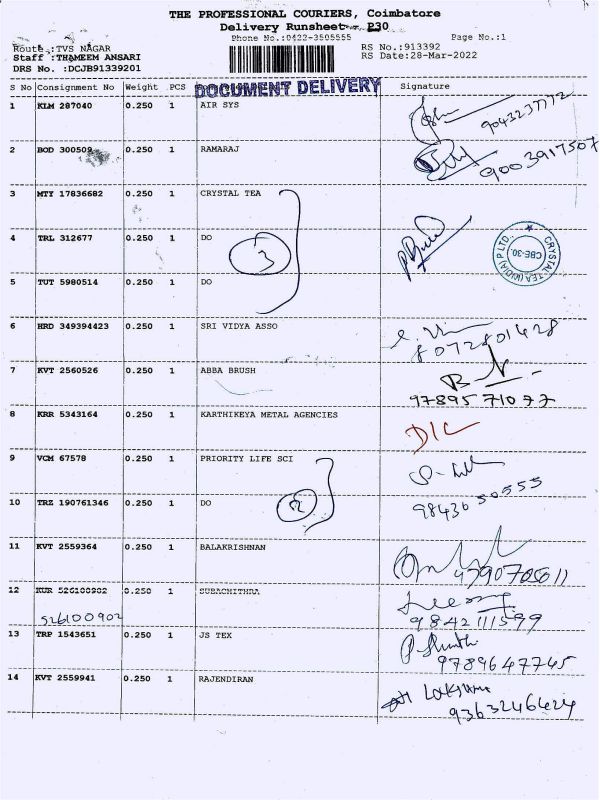 THE PROFESSIONAL COURIERS, Coimbatore
Delivery Runsheet P30
Phone No.:0422-3505555
Page No.:1
Route :TVS NAGAR
Staff :THAMEEM ANSARI
DRS No. :DCJB91339201
RS No.:913392
RS Date:28-Mar-2022
S No Consignment No Weight PCS DOCUMENT DELIVERY Signature
1 KLM 287040 0.250 1 AIR SYS
9043237772
2 BOD 300509 0.250 1 RAMARAJ
9003917507
3 MTY 17836682 0.250 1 CRYSTAL TEA
4 TRL 312677 0.250 1 DO
3
CRYSTAL TEA (INDIA) P LTD. CBE-30.
5 TUT 5980514 0.250 1 DO
6 HRD 349394423 0.250 1 SRI VIDYA ASSO
8072801428
7 KVT 2560526 0.250 1 ABBA BRUSH
9789571077
8 KRR 5343164 0.250 1 KARTHIKEYA METAL AGENCIES
D/C
9 VCM 67578 0.250 1 PRIORITY LIFE SCI
10 TRZ 190761346 0.250 1 DO
2
9843650555
11 KVT 2559364 0.250 1 BALAKRISHNAN
9790705011
12 KUR 526100902 0.250 1 SUBACHITHRA
526100902
9842111599
13 TRP 1543651 0.250 1 JS TEX
9789647745
14 KVT 2559941 0.250 1 RAJENDIRAN
9363246424